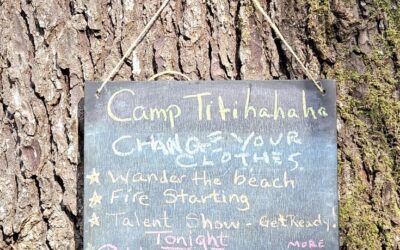 Camp Titihahaha
CHANGE YOUR
CLOTHES
Wander the beach
Fire Starting
Talent Show - Get Ready!
Tonight
MORE